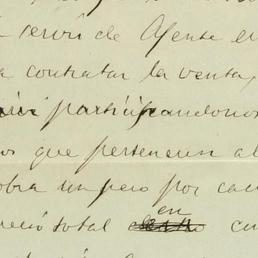 a servir de Agente en
a contratar la venta,
participandonos
os que pertenecen al
obra un peso por ca
precio total en